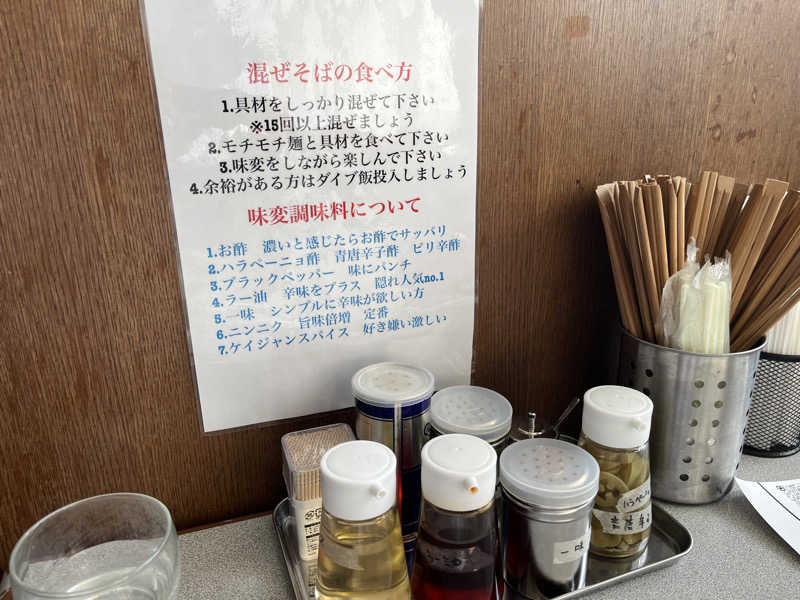 混ぜそばの食べ方
1.具材をしっかり混ぜて下さい
※15回以上混ぜましょう
2.モチモチ麺と具材を食べて下さい
3.味変をしながら楽しんで下さい
4.余裕がある方はダイブ飯投入しましょう
味変調味料について
1.お酢 濃いと感じたらお酢でサッパリ
2.ハラペーニョ酢 青唐辛子酢 ピリ辛酢
3.ブラックペッパー 味にパンチ
4.ラー油 辛味をプラス 隠れ人気no.1
5.一味 シンプルに辛味が欲しい方
6.ニンニク 旨味倍増 定番
7.ケイジャンスパイス 好き嫌い激しい
一味